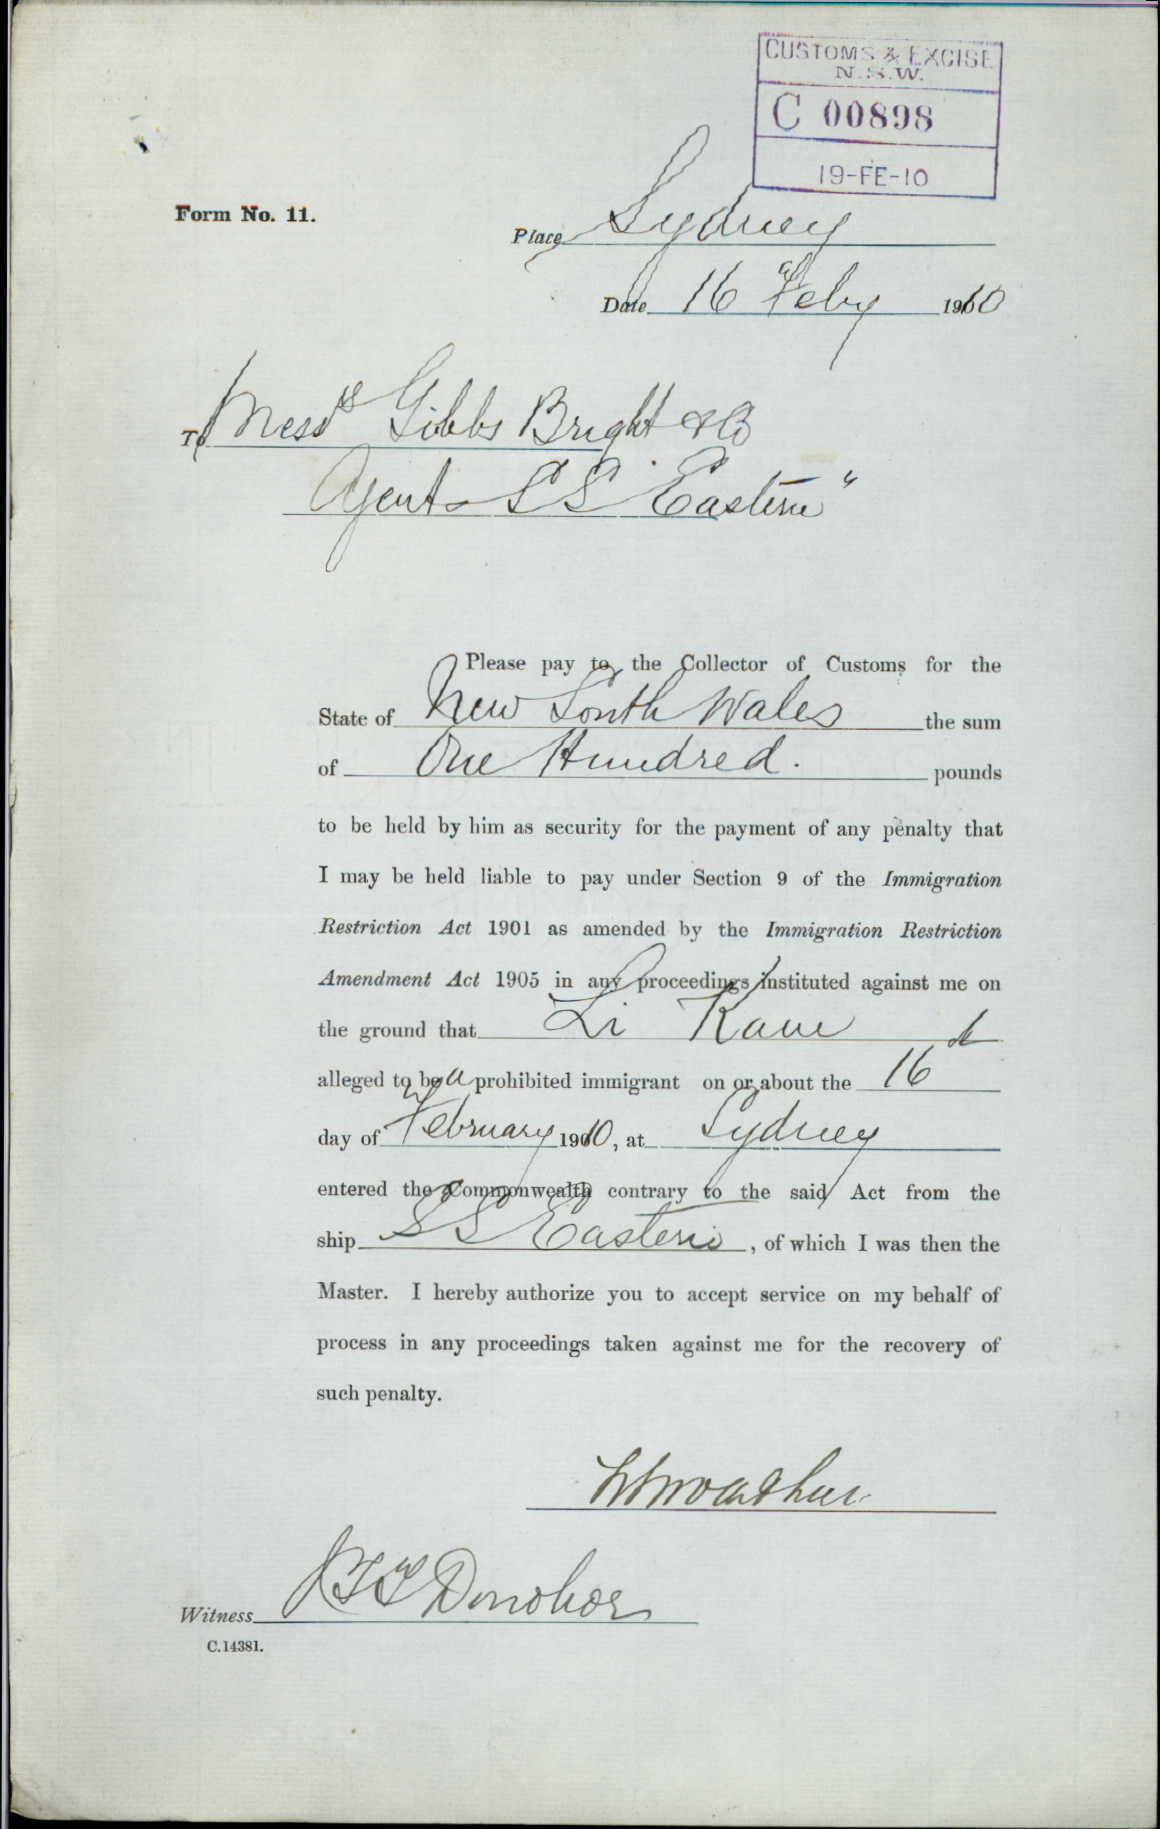 CUSTOMS & EXCISE
N.S.W.
C 00898
19-FE-10
Form No. 11.
Place Sydney
Date 16 Feby 1910
To Messrs Gibbs Bright & Co
Agents SS "Eastern"
Please pay to the Collector of Customs for the
State of New South Wales the sum
of One Hundred. pounds
to be held by him as security for the payment of any penalty that
I may be held liable to pay under Section 9 of the Immigration
Restriction Act 1901 as amended by the Immigration Restriction
Amendment Act 1905 in any proceedings instituted against me on
the ground that Li Kaue
alleged to be a prohibited immigrant on or about the 16th
day of February 1910, at Sydney
entered the Commonwealth contrary to the said Act from the
ship SS Eastern, of which I was then the
Master. I hereby authorize you to accept service on my behalf of
process in any proceedings taken against me for the recovery of
such penalty.
Witness Donohoe
C.14381.